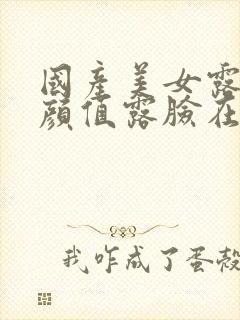 國產美女露
顏值露臉在
我咋成了蛋殼